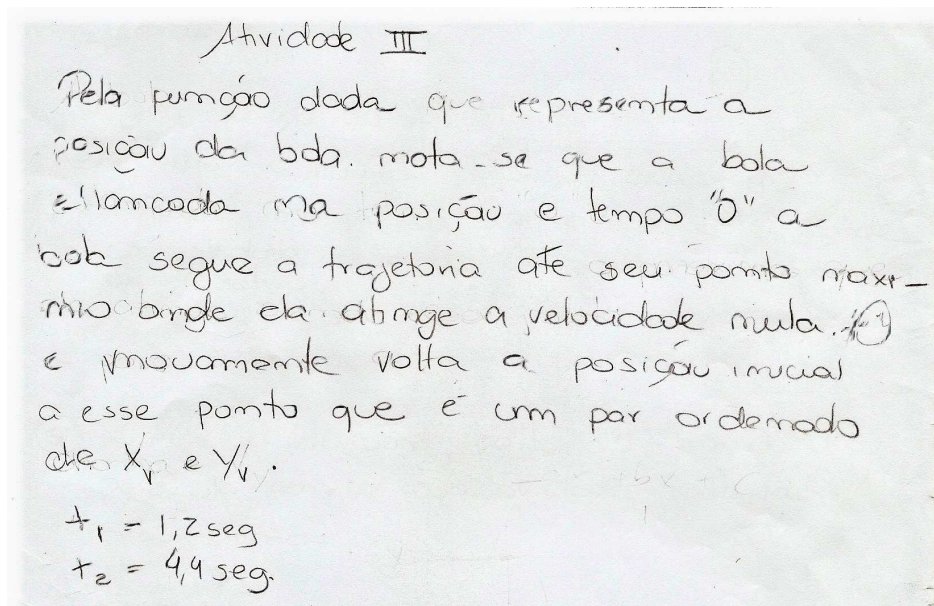 Atividade III
Pela função dada que representa a
posição da bola. nota-se que a bola
é lançada na posição e tempo "0" a
bola segue a trajetoria até seu ponto maxi-
mo onde ela atinge a velocidade nula.
e novamente volta a posição inicial
a esse ponto que é um par ordenado
de Xv e Yv.
t1 = 1,2 seg
t2 = 4,4 seg.